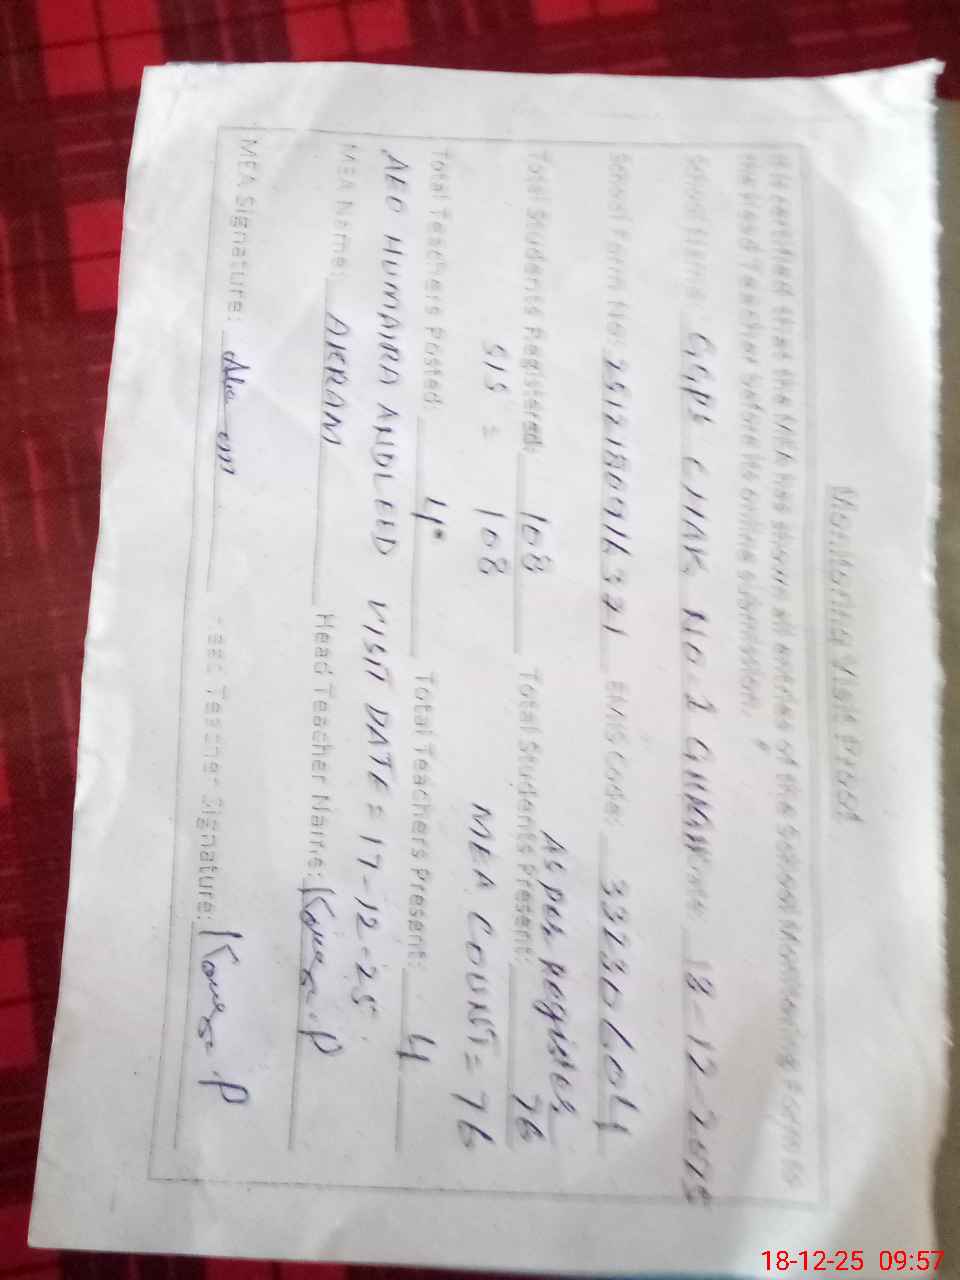 Monitoring Visit Proof
It is certified that the MEA has shown all entries of the School Monitoring Form to
the Head Teacher before its online submission.
School Name: GGPS CHAK NO-1 Date: 18-12-2025
School Form No: EMIS Code:
Total Students Registered: 108 Total Students Present: As per Register 76
SIS = 108 MEA COUNT = 76
Total Teachers Posted: 4 Total Teachers Present: 4
AEO HUMAIRA ANDLEEB VISIT DATE = 17-12-25
MEA Name: AKRAM Head Teacher Name:
MEA Signature: Head Teacher Signature:
18-12-25 09:57